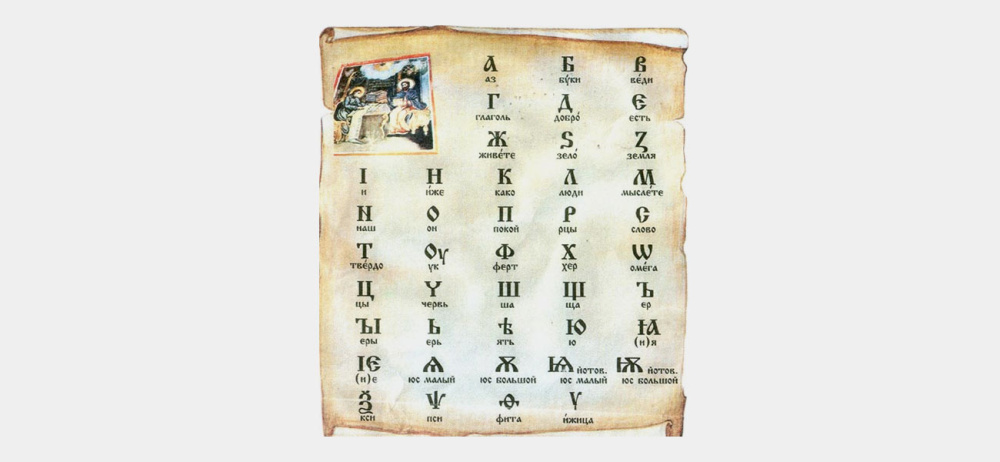 А Б В
аз бу́ки ве́ди
Г Д Є
глаголь добро́ єсть
Ж Ѕ Ꙁ
живе́те зело́ земля
І Н К Л М
и и́же како люди мысле́те
N О П Р С
наш он покой рцы слово
Т Оу Ф Х Ѡ
тве́рдо ук ферт хер оме́га
Ц Ч Ш Щ Ъ
цы червь ша ща ер
ЪІ Ь Ѣ Ю Ꙗ
еры ерь ять ю (и)я
Ѥ Ѧ Ѫ Ѩ йотов. Ѭ йотов.
(и)е юс малый юс большой юс малый юс большой
Ѯ Ѱ Ѳ Ѵ
кси пси фита и́жица